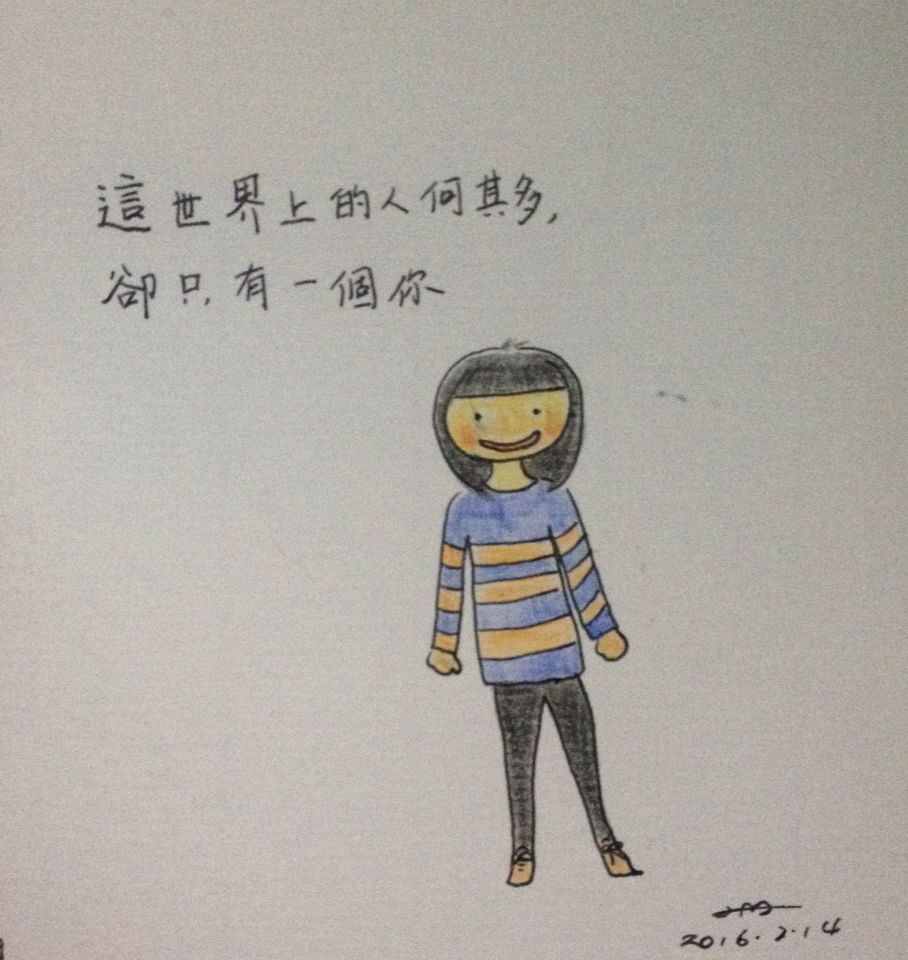 這世界上的人何其多,
卻只有一個你
2016.2.14